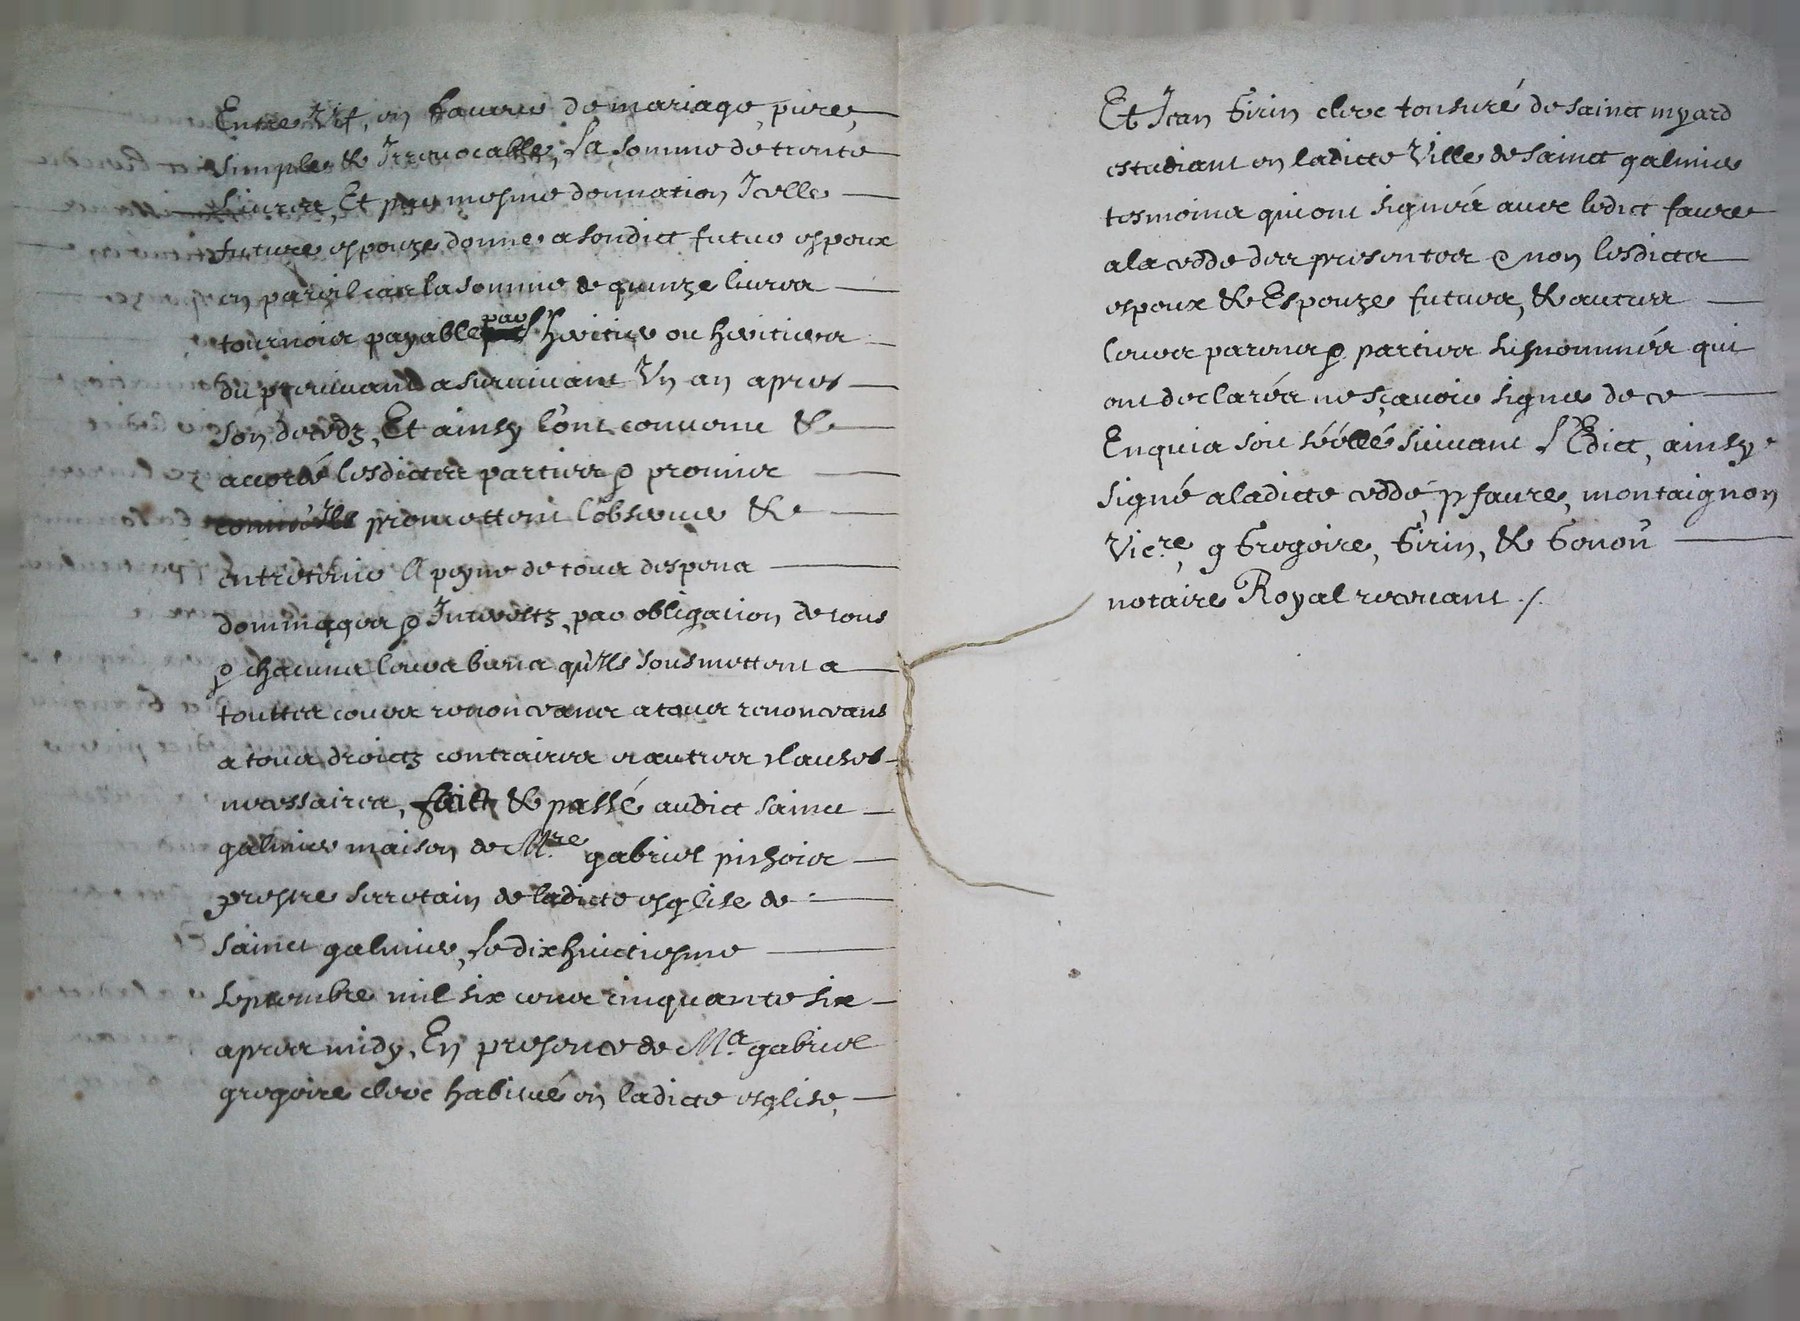 Entre vif, en faveur de mariage, pure,
simple & Irrevocable, La somme de trente
Livres, Et par mesme donnation Icelle
future espouze donne a sondict futur espoux
en pareil cas la somme de quinze livres
tournois payable par heritier ou heritiers
du premourant a survivant Un an apres
son decedz, Et ainsy l'ont convenu &
accordé lesdictes parties & promis
promettent l'observer &
entretenir A peyne de tous despens
dommages & Interestz, par obligation de tous
& chacuns leurs biens qu'Ils sousmettent a
touttes cours renonceans a tous renonceans
a tous droictz contraires et autres clauses
necessaires, faict & passé audict sainct
galmier maison de Mre gabriel pinhois
prestre secretain de ladicte esglise de
sainct galmier, Le dixhuictiesme
septembre mil six cens cinquante six
apres midy, En presence de Me gabriel
gregoire clerc habitué en ladicte esglise,
Et Jean Girin clerc tonsuré de sainct myard
estudiant en ladicte Ville de sainct galmier
tesmoins qui ont signés avec ledict faure
a la cedde des presentes & non lesdictes
espoux & Espouze futurs, & autres
leurs parens & parties susnommés qui
ont declarés ne sçavoir signer de ce
Enquis soit séellé suivant L'Edict, ainsy
signé a ladicte cedde, p faure, montaignon
Vicre, g Gregoire, Girin, & Gonon
notaire Royal recevant ./.